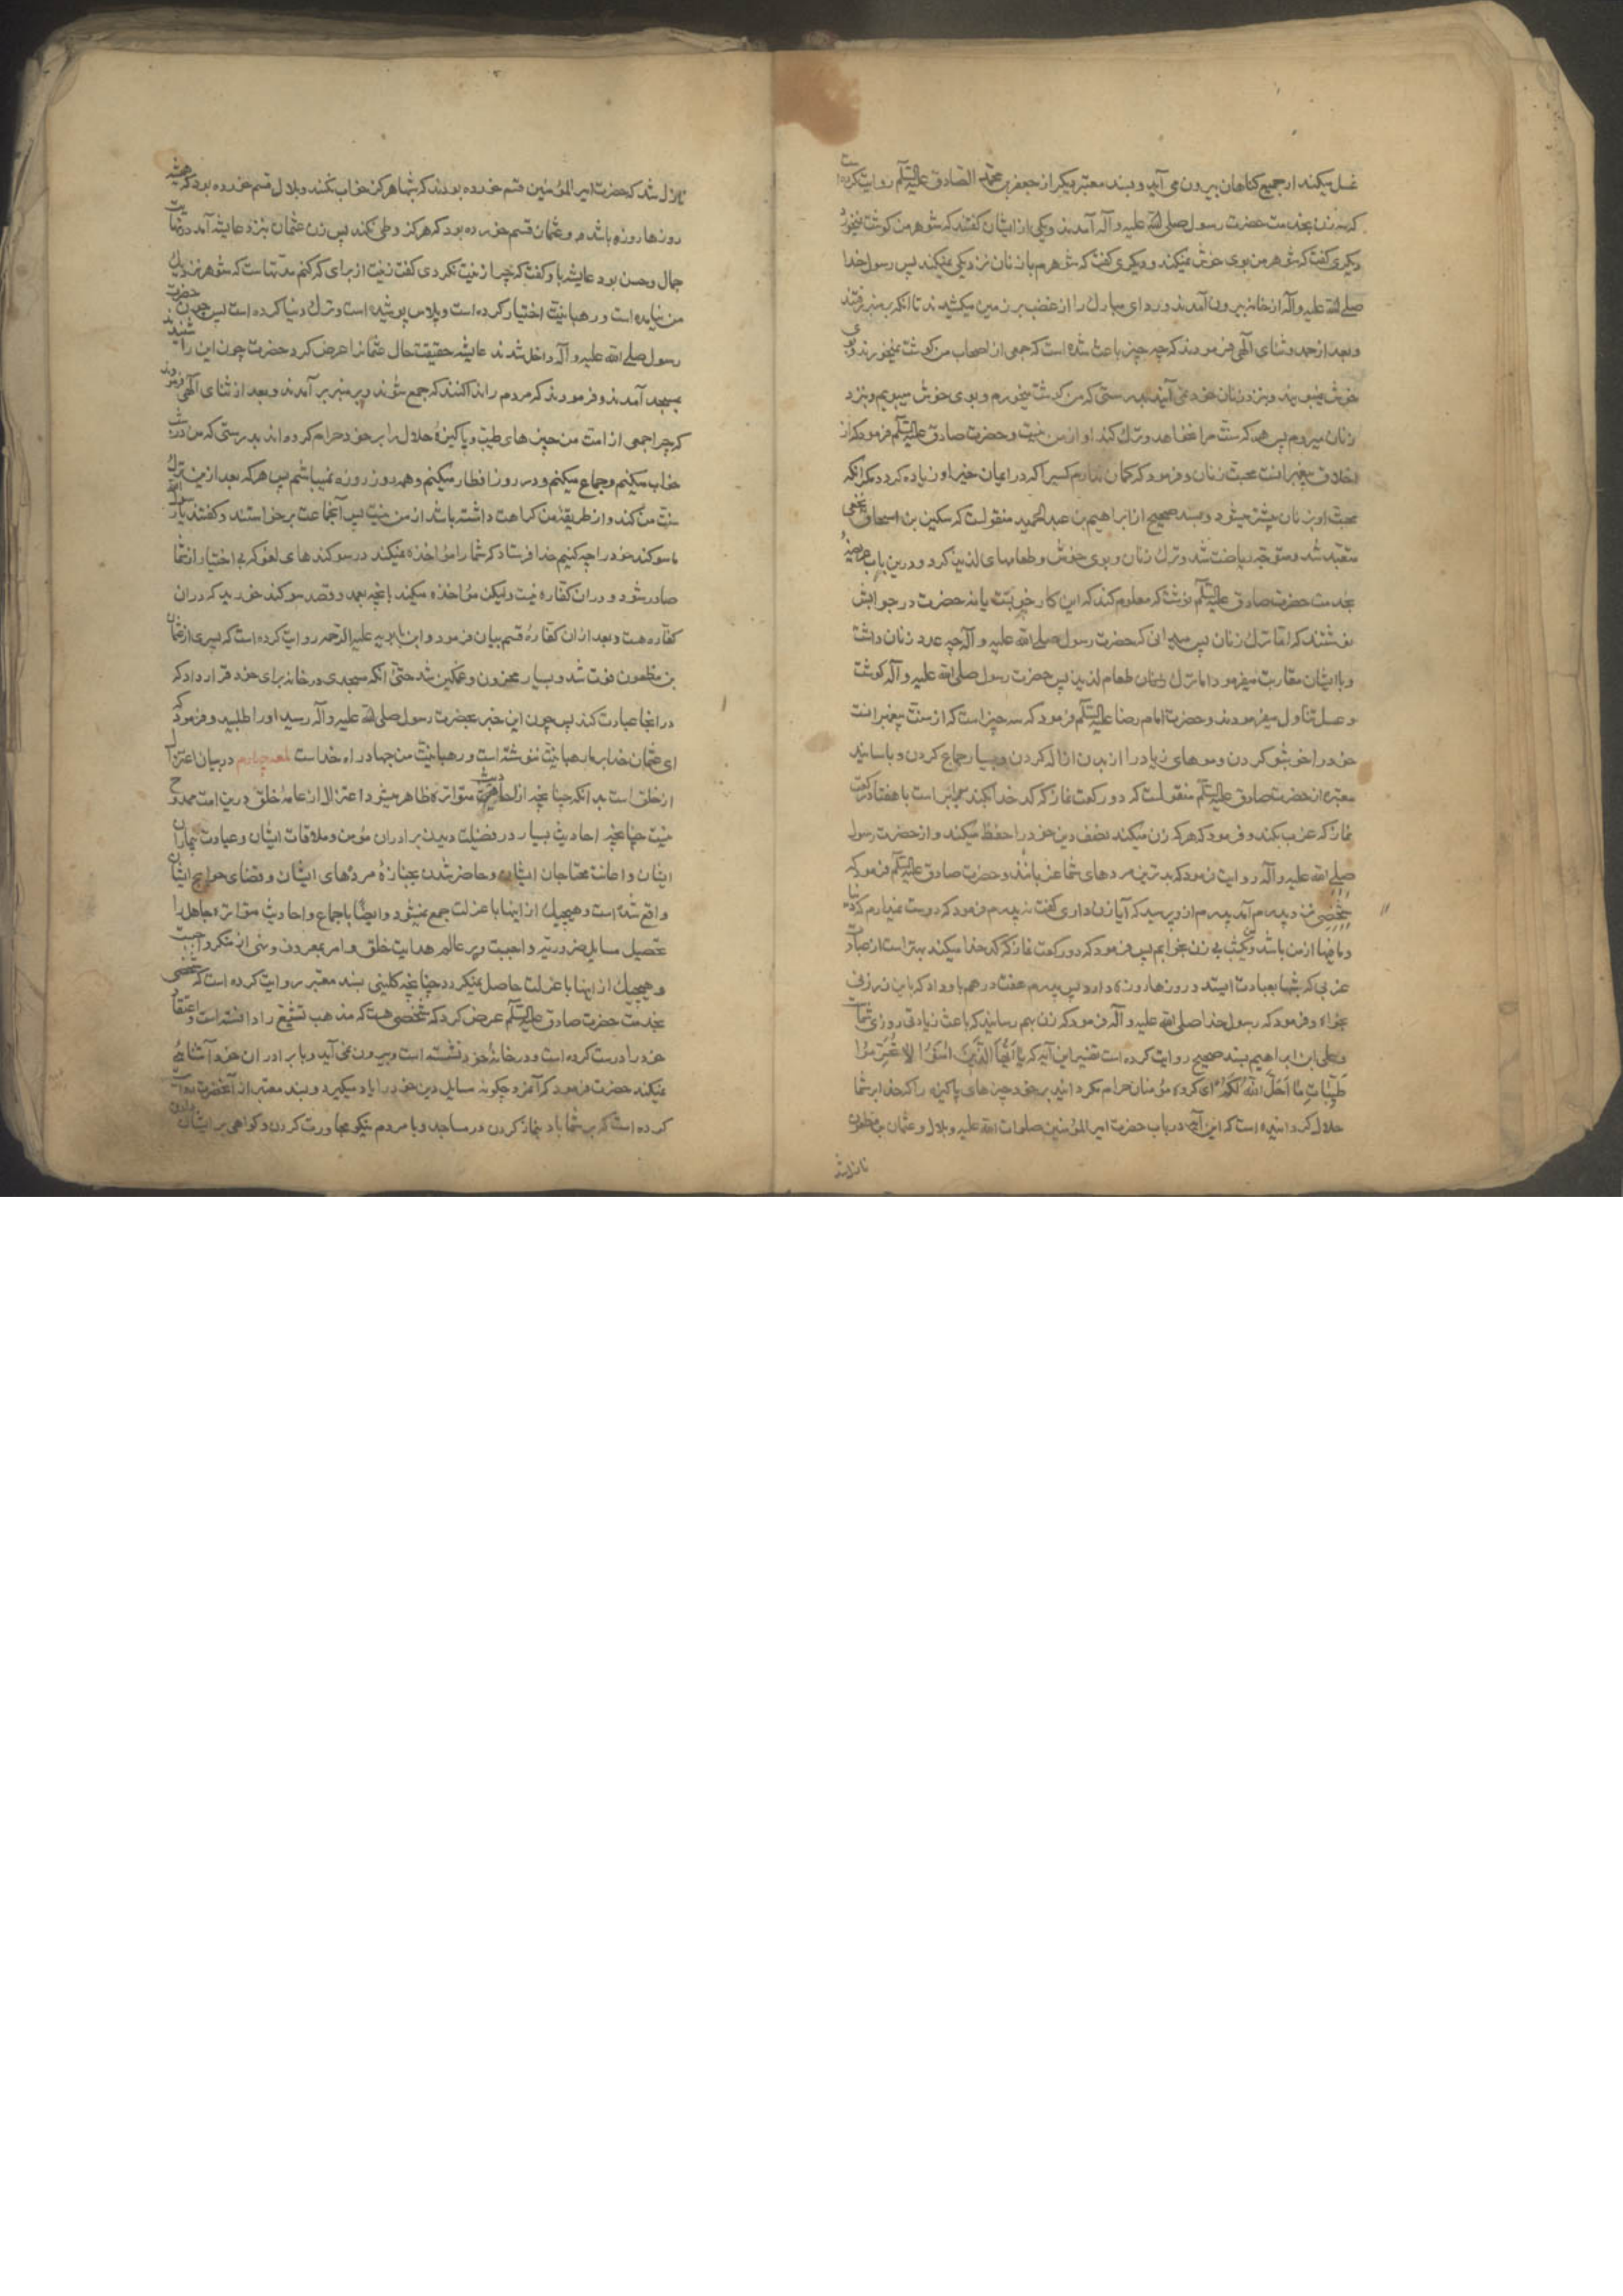 غسل میکند از جمیع کناهان بیرون می آید و بسند معتبر دیکر از جعفر بن محمّد الصادق علیه السّلم روایت کرده است
که سه زن بخدمت حضرت رسول صلی الله علیه و آله آمدند و یکی از ایشان کفتند که شوهر من کوشت نمیخورد
دیکری کفت که شوهر من بوی خوش نمیکند و دیکری کفت که شوهرم با زنان نزدیکی نمیکند پس رسول خدا
صلے الله علیه و آله از خانه بیرون آمدند و ردای مبارك را از غضب بر زمین میکشیدند تا انکه بر منبر رفتند
و بعد از حمد و ثنای الٰهی فرمودند که چه چیز باعث شده است که جمعی از اصحاب من کوشت نمیخورند و بوی
خوش نمیبویند و بنزد زنان خود نمی آیند بدرستی که من کوشت میخورم و بوی خوش میبویم و بنزد
زنان میروم پس هر که سنّت مرا نخواهد و ترك کند او از من نیست و حضرت صادق علیه السّلم فرمود که از
اخلاق پیغمبرانست محبّت زنان و فرمود که کمان ندارم کسیرا که در ایمان خیر او زیاده کردد مکر انکه
محبّت او بزنان بیشتر میشود و بسند صحیح از ابراهیم بن عبدالحمید منقولست که سکین بن اسحاق نخعی
متعبّد شد و متوجّه ریاضت شد و ترك زنان و بوی خوش و طعامهای لذیذ کرد و درین باب عریضهٔ
بخدمت حضرت صادق علیه السّلم نوشت که معلوم کند که این کار خوبست یا نه حضرت در جوابش
نوشتند که امّا ترك زنان پس میدانی که حضرت رسول صلے الله علیه و آله چه عدد زنان داشت
و با ایشان مقاربت میفرمود اما ترك طعام لذیذ پس حضرت رسول صلی الله علیه و آله کوشت
و عسل تناول میفرمودند و حضرت امام رضا علیه السّلم فرمود که سه چیز است که از سنّت پیغمبرانست
خود را خوشبو کردن و موهای زیاد را از بدن ازاله کردن و بسیار جماع کردن و باسانید
معتبره از حضرت صادق علیه السّلم منقولست که دو رکعت نماز که کدخدا بکند برابر است با هفتاد رکعت
نماز که عزب بکند و فرمود که هر که زن میکند نصف دین خود را حفظ میکند و از حضرت رسول
صلے الله علیه و آله روایت نمود که بدترین مردهای شما عزبانند و حضرت صادق علیه السّلم فرمود که
شخصی نزد پدرم آمد پدرم از و پرسید که آیا زن داری کفت نه پدرم فرمود که دوست نمیدارم که دنیا
و ما فیها از من باشد و یکشب بی زن بخوابم پس فرمود که دو رکعت نماز که کدخدا میکند بهتر است از عبادت
عزبی که شبها بعبادت ایستد و روزها روزه دارد پس پدرم هفت درهم باو داد که باین زر زنی
بخواه و فرمود که رسول خدا صلی الله علیه و آله فرمود که زن بهم رسانید که باعث زیادتی روزی شماست
و علی ابن ابراهیم بسند صحیح روایت کرده است تفسیر این آیه که یا اَیُّهَا الَّذِینَ اٰمَنُوا لاٰ تُحَرِّمُوا
طَیِّبٰاتِ مٰا اَحَلَّ اللهُ لَکُمْ ای کروه مؤمنان حرام مکردانید بر خود چیزهای پاکیزه را که خدا بر شما
حلال کردانیده است که این آیه در باب حضرت امیر المؤمنین صلوات الله علیه و بلال و عثمان بن مظعون
نازل شد
نازل شد که حضرت امیر المؤمنین قسم خورده بودند که شبها هرکز خواب نکنند و بلال قسم خورده بود که همیشه
روزها روزه باشد و عثمان قسم خورده بود که هرکز وطی نکند پس زن عثمان بنزد عایشه آمد در نهایت
جمال و حسن بود عایشه باو کفت که چرا زینت نکردی کفت زینت از برای که کنم مدّتهاست که شوهر نزدیك
من نیامده است و رهبانیّت اختیار کرده است و پلاس پوشیده است و ترك دنیا کرده است پس چون حضرت
رسول صلے الله علیه و آله داخل شدند عایشه حقیقت حال عثمانرا عرض کرد حضرت چون این را شنیدند
بمسجد آمدند و فرمودند که مردم را ندا کنند که جمع شوند و بر منبر بر آمدند و بعد از ثنای الٰهی فرمودند
که چرا جمعی از امّت من چیزهای طیّب و پاکیزهٔ حلال را بر خود حرام کرده اند بدرستی که من در شب
خواب میکنم و جماع میکنم و در روز افطار میکنم و همه روز روزه نمیباشم پس هر که بعد از من ترك
سنّت من کند و از طریقهٔ من کراهت داشته باشد از من نیست پس آنجماعت برخواستند و کفتند یا رسول الله
ما سوکند خورده ایم چه کنیم خدا فرستاد که شما را مؤاخذه نمیکند در سوکندهای لغو که بی اختیار از شما
صادر شود و در ان کفاره نیست ولیکن مؤاخذه میکند بانچه بعمد و قصد سوکند خورید که در ان
کفّاره هست و بعد از ان کفّارهٔ قسم بیان فرمود و ابن بابویه علیه الرّحمه روایت کرده است که پسری از عثمان
بن مظعون فوت شد و بسیار محزون و غمکین شد حتّی انکه مسجدی در خانه برای خود قرار داد که
در انجا عبادت کند پس چون این خبر بحضرت رسول صلی الله علیه و آله رسید او را طلبید و فرمود که
ای عثمان خدا بر ما رهبانیّت ننوشته است و رهبانیّت امّت من جهاد در راه خداست لمعه چهارم در بیان اعتزال
از خلق است بدانکه چنانچه از احادیث متواتره ظاهر میشود اعتزال از عامهٔ خلق درین امّت ممدوح
نیست چنانچه احادیث بسیار در فضیلت دیدن برادران مؤمن و ملاقات ایشان و عیادت بیماران
ایشان و اعانت محتاجان ایشان و حاضر شدن بجنازهٔ مردهای ایشان و قضای حوایج ایشان
واقع شده است و هیچیك از اینها با عزلت جمع نمیشود و ایضًا باجماع و احادیث متواتره جاهل را
تحصیل مسایل ضروریّه واجبست و بر عالم هدایت خلق و امر بمعروف و نهی از منکر واجبست
و هیچیك از اینها با عزلت حاصل نمیکردد چنانچه کلینی بسند معتبر روایت کرده است که شخصی
بخدمت حضرت صادق علیه السّلم عرض کرد که شخصی هست که مذهب تشیّع را دانسته است و اعتقاد
خود را درست کرده است و در خانهٔ خود نشسته است و بیرون نمی آید و با برادران خود آشنائی
نمیکند حضرت فرمود که این مرد چکونه مسایل دین خود را یاد میکیرد و بسند معتبر از آنحضرت روایت
کرده است که بر شما باد بنماز کردن در مساجد و با مردم نیکو مجاورت کردن و کواهی بر ایشان دادن